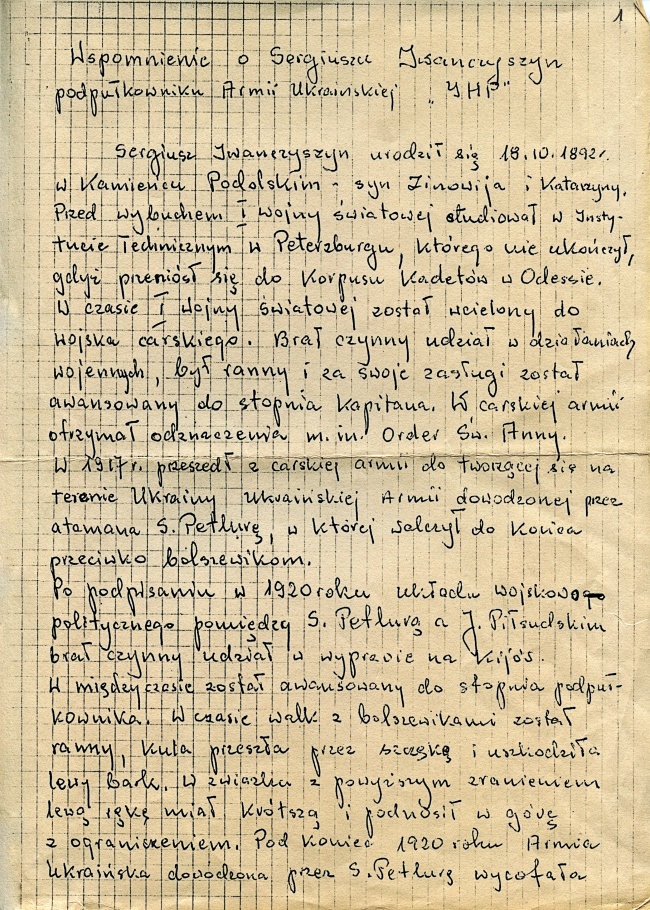 1
Wspomnienie o Sergiuszu Iwanczyszyn
podpułkowniku Armii Ukraińskiej „УНР"
Sergiusz Iwanczyszyn urodził się 18.10.1892r.
w Kamieńcu Podolskim - syn Zinowija i Katarzyny.
Przed wybuchem I wojny światowej studiował w Insty-
tucie Technicznym w Peterzburgu, którego nie ukończył,
gdyż przeniósł się do Korpusu Kadetów w Odessie.
W czasie I wojny światowej został wcielony do
wojska carskiego. Brał czynny udział w działaniach
wojennych, był ranny i za swoje zasługi został
awansowany do stopnia kapitana. W carskiej armii
otrzymał odznaczenia m.in. Order Św. Anny.
W 1917r. przeszedł z carskiej armii do tworzącej się na
terenie Ukrainy Ukraińskiej Armii dowodzonej przez
atamana S. Petlurę, w której walczył do końca
przeciwko bolszewikom.
Po podpisaniu w 1920 roku układu wojskowego
politycznego pomiędzy S. Petlurą a J. Piłsudskim
brał czynny udział w wyprawie na Kijów.
W międzyczasie został awansowany do stopnia podpuł-
kownika. W czasie walk z bolszewikami został
ranny, kula przeszła przez szczękę i uszkodziła
lewy bark. W związku z powyższym zranieniem
lewą rękę miał krótszą i podnosił w górę
z ograniczeniem. Pod koniec 1920 roku Armia
Ukraińska dowodzona przez S. Petlurę wycofała